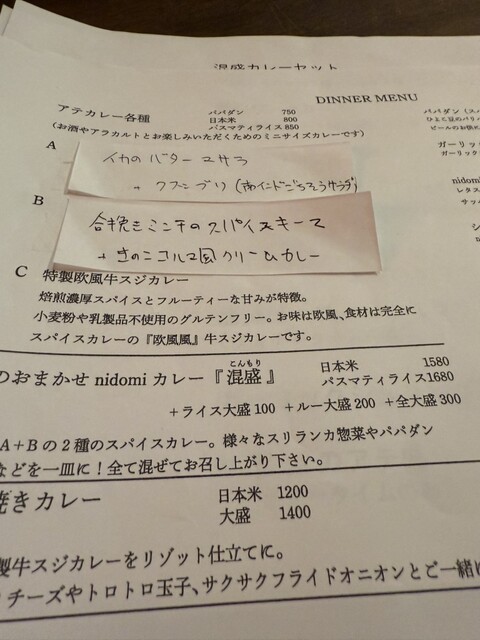 混盛カレーセット
DINNER MENU
アテカレー各種
パパダン 750
日本米 800
バスマティライス 850
(お酒やアラカルトとお楽しみいただくためのミニサイズカレーです)
A
イカのバターマサラ
+ クスンブリ (南インドごちそうサラダ)
B
合挽きミンチのスパイスキーマ
+ きのこコルマ風クリームカレー
C 特製欧風牛スジカレー
焙煎濃厚スパイスとフルーティーな甘みが特徴。
小麦粉や乳製品不使用のグルテンフリー。お味は欧風、食材は完全に
スパイスカレーの『欧風風』牛スジカレーです。
のおまかせ nidomi カレー『混盛』
こんもり
日本米 1580
バスマティライス1680
+ライス大盛 100 +ルー大盛 200 +全大盛 300
A+Bの2種のスパイスカレー。様々なスリランカ惣菜やパパダン
などを一皿に!全て混ぜてお召し上がり下さい。
焼きカレー
日本米 1200
大盛 1400
製牛スジカレーをリゾット仕立てに。
チーズやトロトロ玉子、サクサクフライドオニオンとご一緒に
パパダン (ス
ひよこ豆のパリ
ビールのお供
ガーリッ
ガーリック
nidomi
レタス
サッ